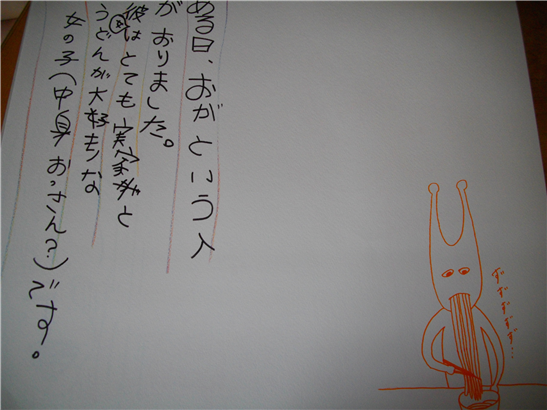 ある日、おがという人
がおりました。
彼はとても実家と
うどんが大好きな
女の子(中身おっさん?)です。
ずずずずず…